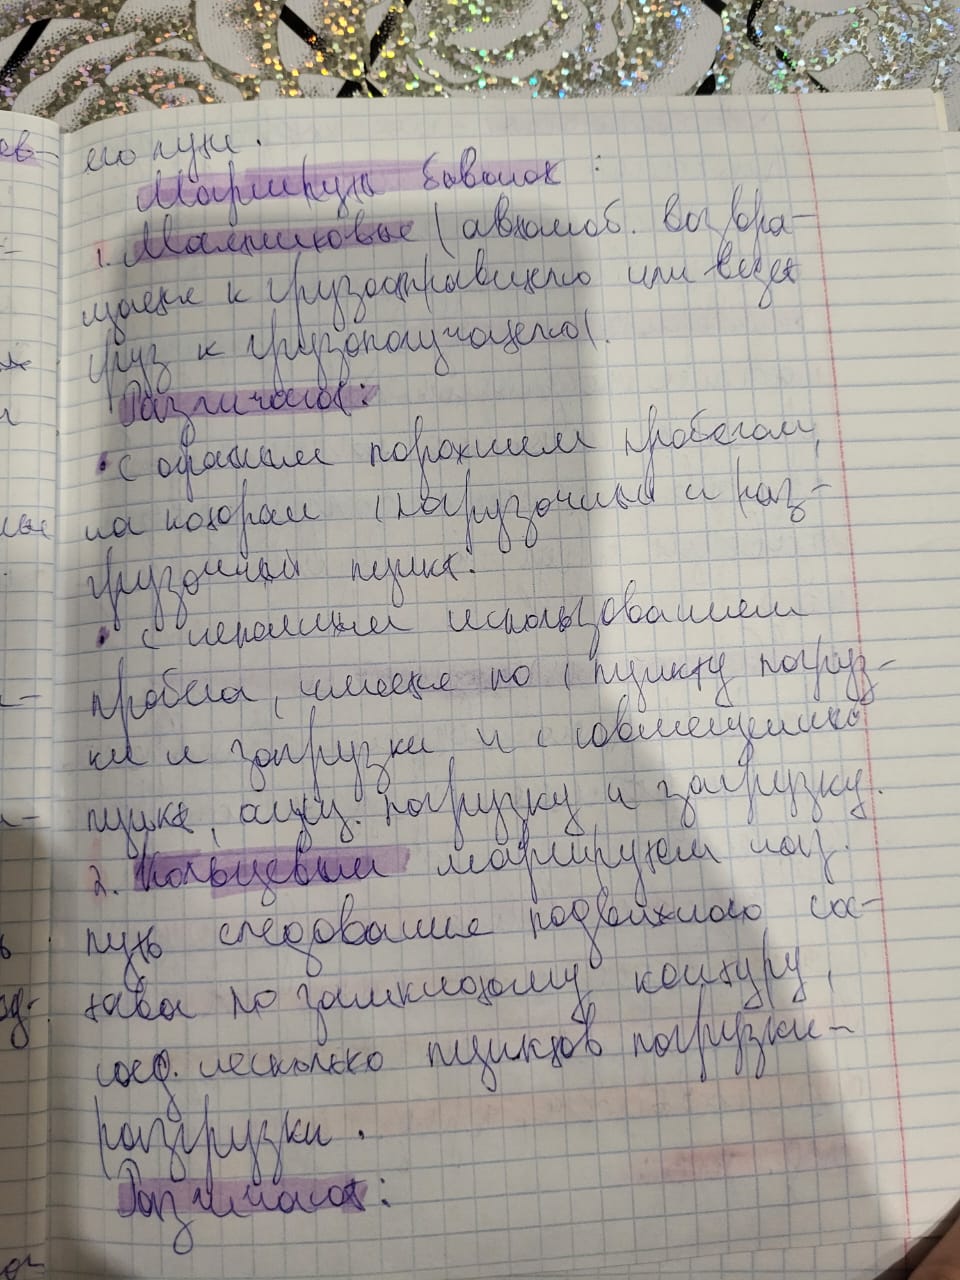 его пути.
Маршруты бывают:
1. Маятниковые (автомоб. возвра-
щается к грузоотправителю или везет
груз к грузополучателю).
Различают:
• с обратным порожнем пробегом,
на котором 1 погрузочный и раз-
грузочный пункт.
• с неполным использованием
пробега, имеется по 1 пункту погруз-
ки и загрузки и 1 совмещенно
пункт, погрузку и загрузку.
2. Кольцевым маршрутом наз.
путь следование подвижного сос-
тава по замкнотому контуру,
соед. несколько пунктов погрузки-
разгрузки.
Различают: